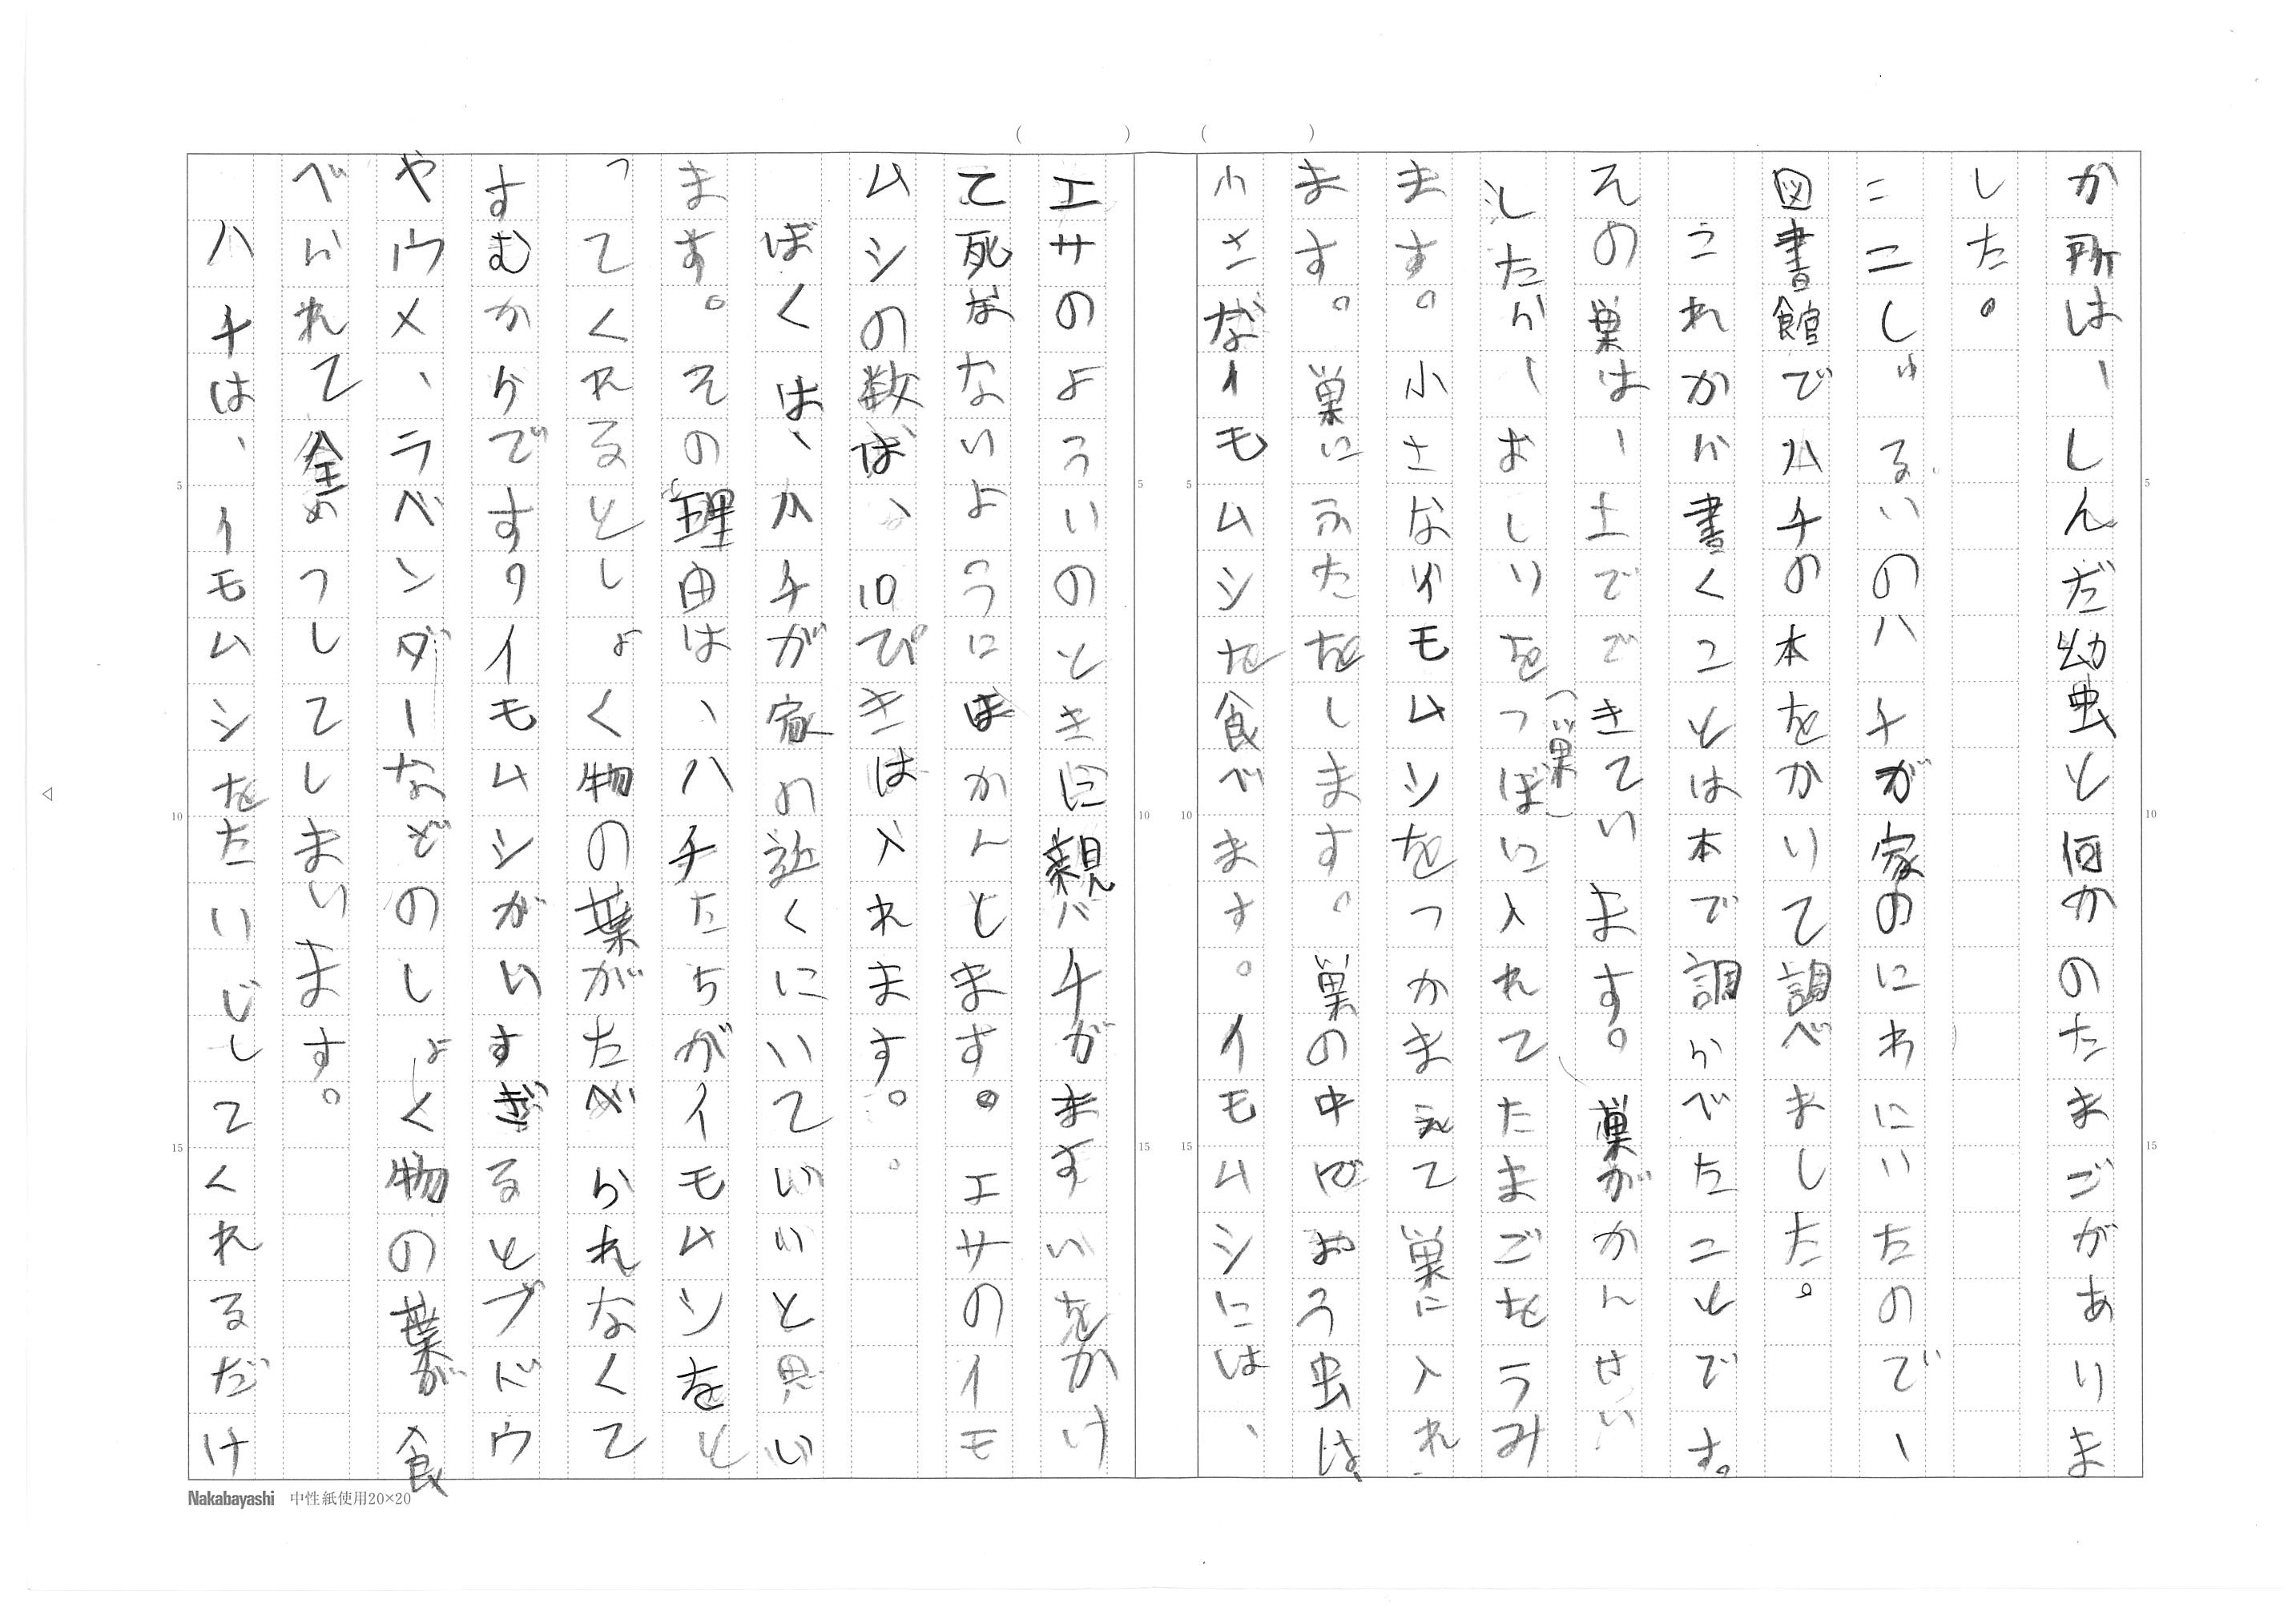 か所は、しんだ幼虫と何かのたまごがありま
した。
二こしゅるいのハチが家のにわにいたので、
図書館でハチの本をかりて調べました。
これから書くことは本で調らべたことです。
その巣は、土でできています。巣がかんせい
したら、おしりをつぼに入れてたまごをうみ
（巣）
ます。小さなイモムシをつかまえて巣に入れ
ます。巣にふたをします。巣の中でよう虫は、
小さなイモムシを食べます。イモムシには、
エサのよういのときに親バチがますいをかけ
て死なないようにほかんとます。エサのイモ
ムシの数は、10ぴきは入れます。
ぼくは、カチが家の近くにいていいと思い
ます。その理由は、ハチたちがイモムシをと
ってくれるとしょく物の葉がたべられなくて
すむからですイモムシがいすぎるとブドウ
やウメ、ラベンダーなどのしょく物の葉が食
べられて全めつしてしまいます。
ハチは、イモムシをたいじしてくれるだけ
Nakabayashi 中性紙使用20×20
5
10
15
5
10
15
5
10
15